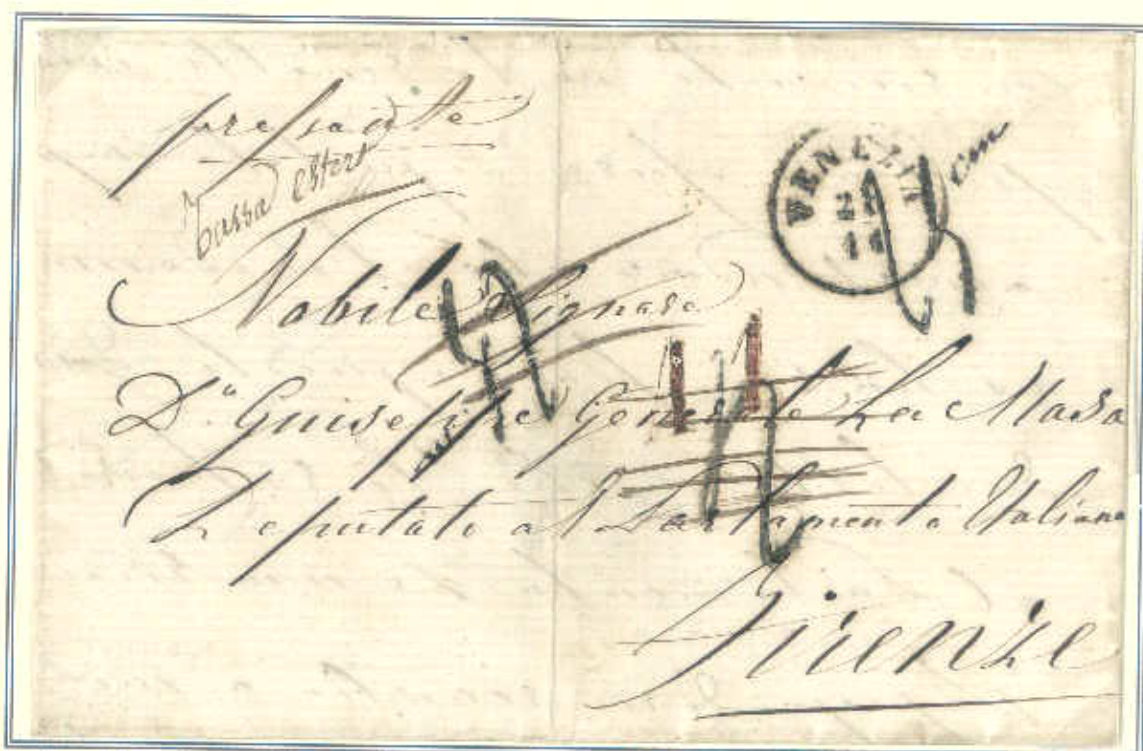 pressante
Tassa estera
VENEZIA
Nobile Signore
D.n Guiseppe Generale La Masa
Deputato al Parlamento Italiano
Firenze